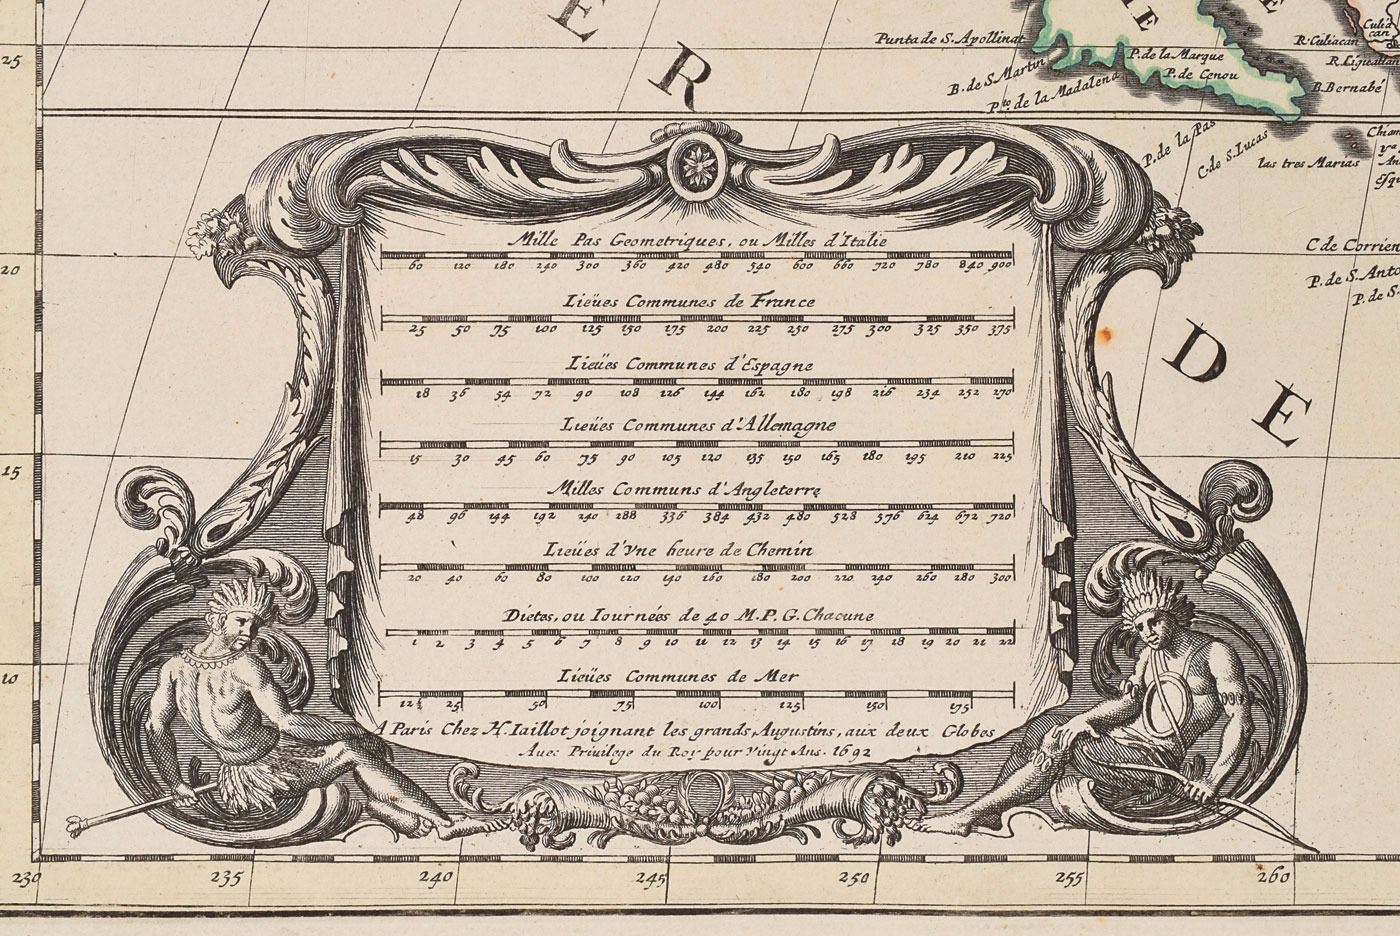 E
R
25
Punta de S. Apollinat
B. de S. Martin
Pto. de la Madalena
IE
P. de la Marque
P. de Cenou
E
Culiacan
R. Culiacan
B. Bernabé
P. de la Pas
C. de S. Lucas
las tres Marias
Mille Pas Geometriques, ou Milles d'Italie
60 120 180 240 300 360 420 480 540 600 660 720 780 840 900
20
C de Corrien
P. de S. Anto
P. de S.
Lieües Communes de France
25 50 75 100 125 150 175 200 225 250 275 300 325 350 375
D E
Lieües Communes d'Espagne
18 36 54 72 90 108 126 144 162 180 198 216 234 252 270
Lieües Communes d'Allemagne
15 30 45 60 75 90 105 120 135 150 165 180 195 210 225
15
Milles Communs d'Angleterre
48 96 144 192 240 288 336 384 432 480 528 576 624 672 720
Lieües d'vne heure de Chemin
20 40 60 80 100 120 140 160 180 200 220 240 260 280 300
Dietes, ou Iournées de 40 M.P.G. Chacune
1 2 3 4 5 6 7 8 9 10 11 12 13 14 15 16 17 18 19 20 21 22
10
Lieües Communes de Mer
12½ 25 50 75 100 125 150 175
A Paris Chez H. Iaillot joignant les grands Augustins, aux deux Globes
Avec Privilege du Roy pour Vingt Ans. 1692
230 235 240 245 250 255 260